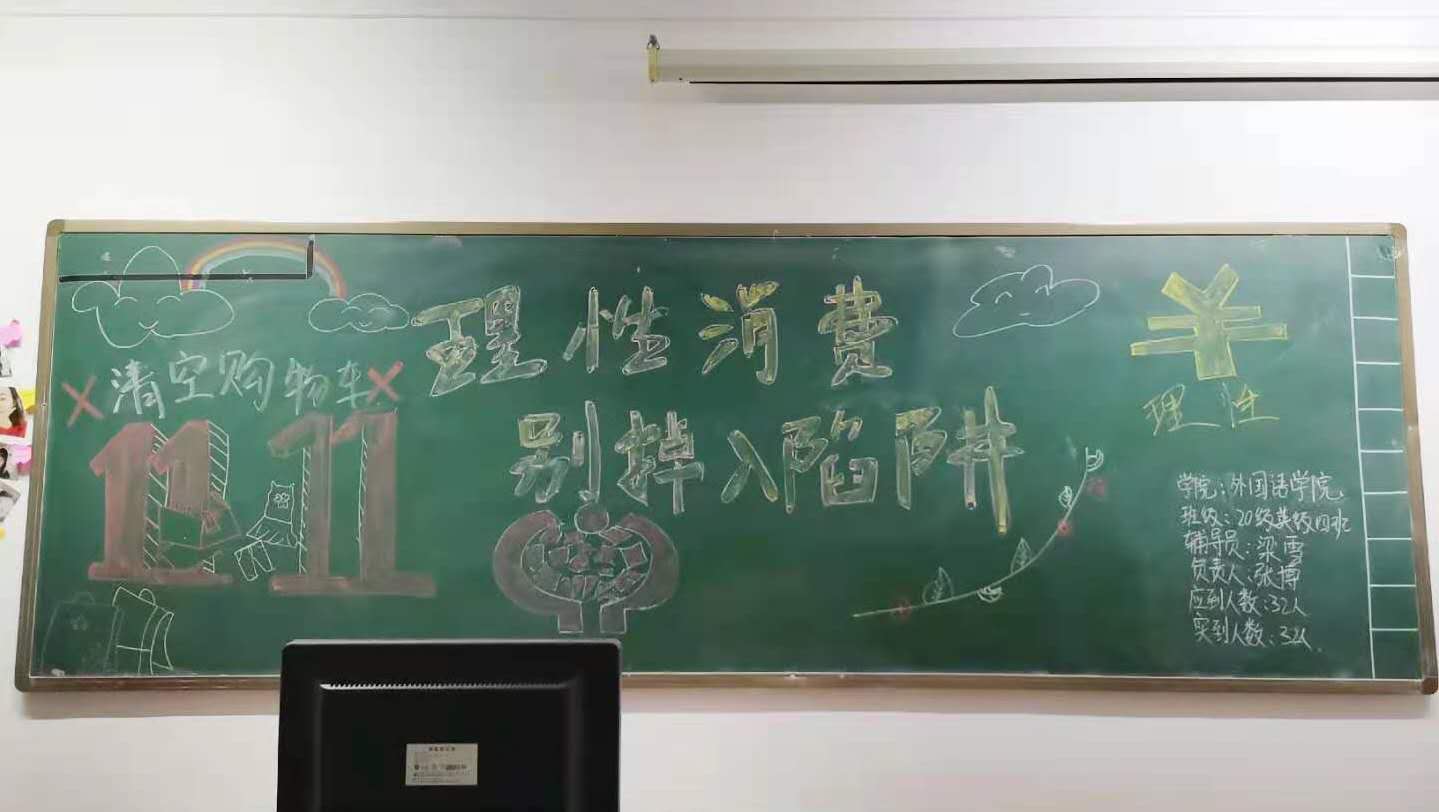 理性消费
别掉入陷阱
×清空购物车×
11.11
¥
理性
学院：外国语学院
班级：20级英级四班
辅导员：梁雪
负责人：张博
应到人数：32人
实到人数：32人.